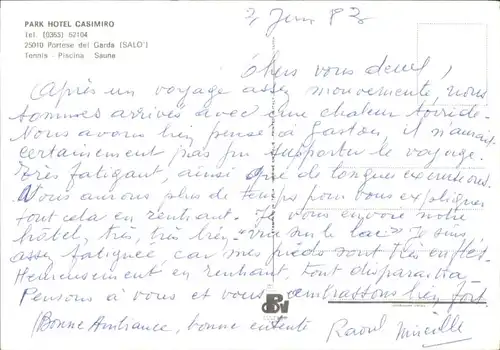 PARK HOTEL CASIMIRO
Tel. (0365) 62104
25010 Portese del Garda (SALO')
Tennis - Piscina Sauna
2 Juin 82
Chers vous deux,
Après un voyage assez mouvementé, nous
sommes arrivés avec une chaleur torride.
Nous avons bien pensé à Gaston, il n'aurait
certainement pas pu supporter le voyage.
très fatigant, ainsi que de longues excursions.
Nous aurons plus de temps pour vous expliquer
tout cela en rentrant. Je vous envoie notre
hôtel, très, très bien, "vue sur le lac" Je suis
assez fatiguée, car mes pieds sont très enflés.
Heureusement en rentrant, tout disparaitra
Pensons à vous et vous embrassons bien fort
(Bonne Ambiance, bonne entente Raoul Mireille